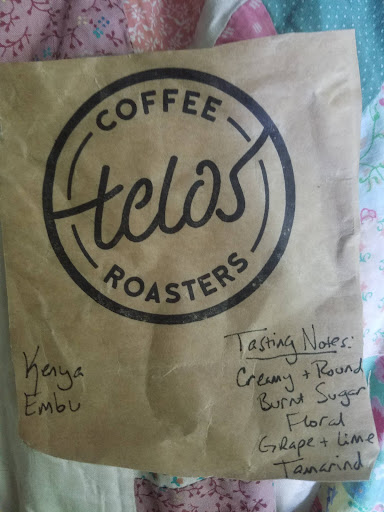 COFFEE
telos
ROASTERS
Kenya
Embu
Tasting Notes:
Creamy + Round
Burnt Sugar
Floral
Grape + Lime
Tamarind